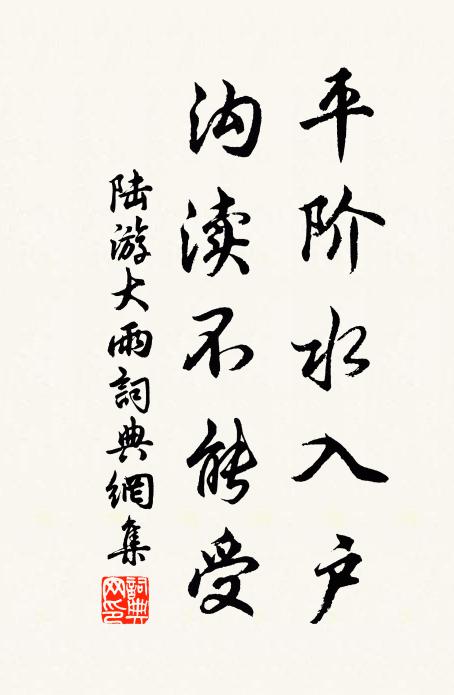 平阶水入户
沟渎不能受
陆游大雨詞典網集
詞典网印